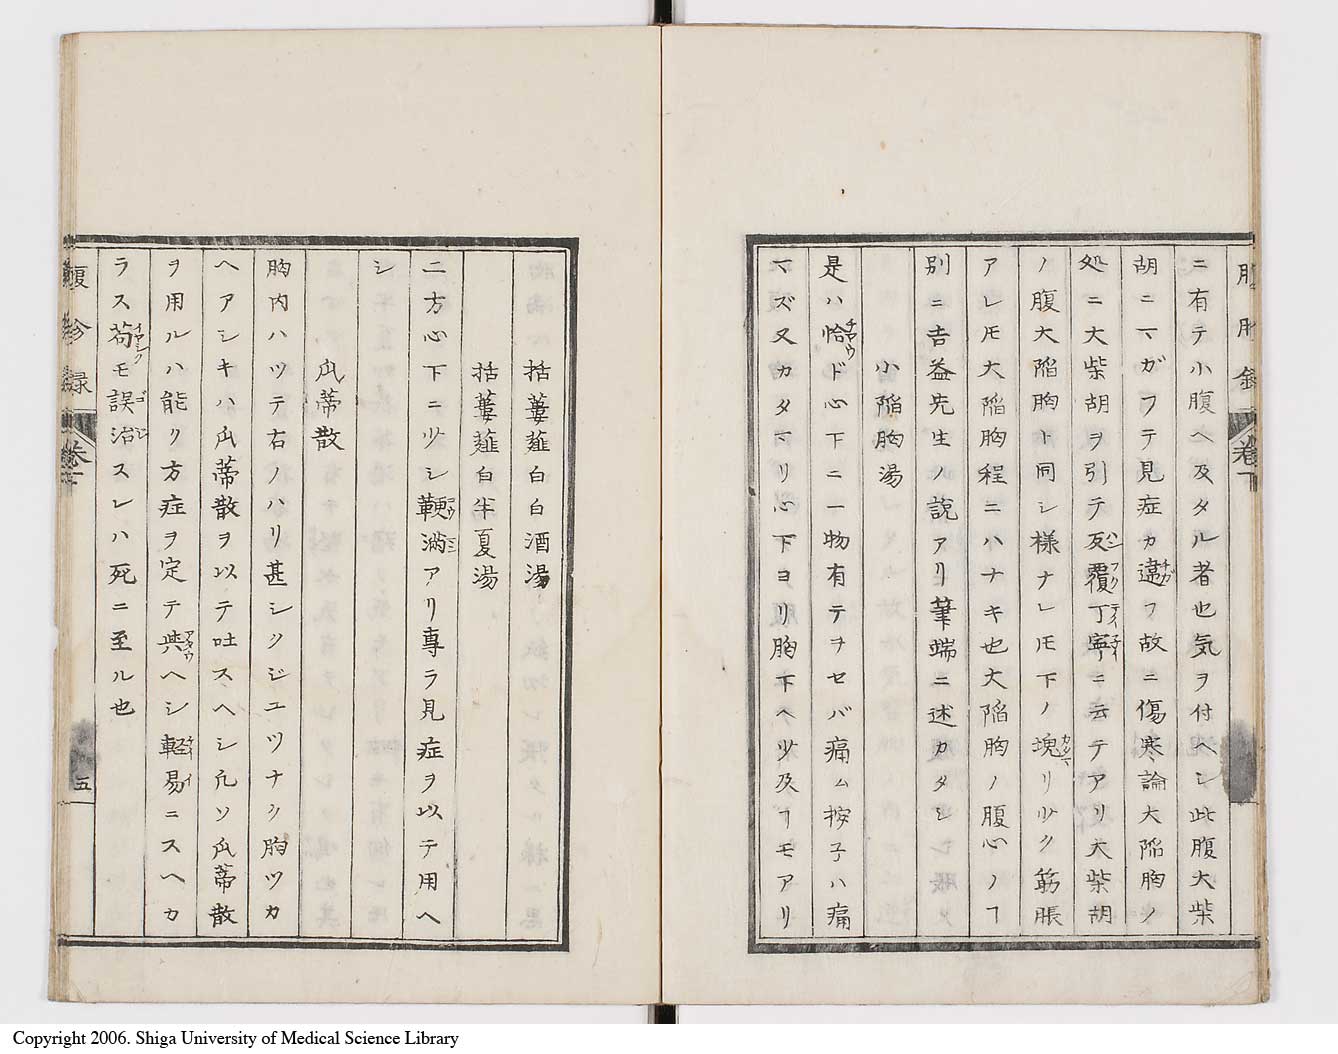 ニ有テ小腹ヘ及タル者也気ヲ付ヘシ此腹大柴
胡ニマガフテ見症カ違フ故ニ傷寒論大陥胸ノ
処ニ大柴胡ヲ引テ反覆丁寧ニ云テアリ大柴胡
ノ腹大陥胸ト同シ様ナレ𪜈下ノ塊リ少ク筋脹
アレ𪜈大陥胸程ニハナキ也大陥胸ノ腹心ノヿ
別ニ吉益先生ノ説アリ筆端ニ述カタシ
小陥胸湯
是ハ恰ド心下ニ一物有テヲセバ痛ム按子ハ痛
マズ又カタマリ心下ヨリ胸下ヘ少及ブヿモアリ
括蔞薤白白酒湯
括蔞薤白半夏湯
二方心下ニ少シ鞕満アリ専ラ見症ヲ以テ用ヘ
シ
瓜蒂散
胸内ハツテ右ノハリ甚シクジユツナク胸ツカ
ヘアシキハ瓜蒂散ヲ以テ吐スヘシ凡ソ瓜蒂散
ヲ用ルハ能ク方症ヲ定テ與ヘシ軽易ニスヘカ
ラス苟モ誤治スレハ死ニ至ル也
腹診録 巻下
五
Copyright 2006. Shiga University of Medical Science Library